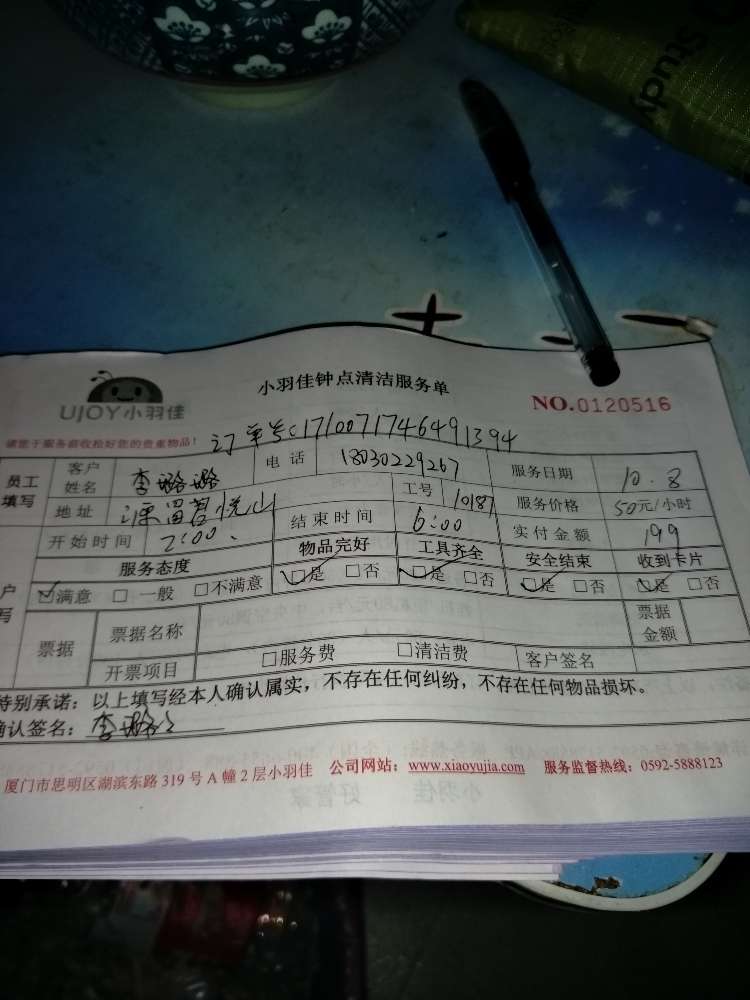 Study
小羽佳钟点清洁服务单
UJOY小羽佳
NO.0120516
请您于服务前收检好您的贵重物品！ 订单号:1710071746491394
员工填写 客户姓名 李璐璐 电话 18030229267 服务日期 10.8
地址 悦山 工号 10187 服务价格 50元/小时
开始时间 2:00 结束时间 6:00 实付金额 199
服务态度 物品完好 工具齐全 安全结束 收到卡片
☑满意 □一般 □不满意 ☑是 □否 ☑是 □否 ☑是 □否 ☑是 □否
票据 票据名称 票据金额
开票项目 □服务费 □清洁费 客户签名
特别承诺：以上填写经本人确认属实，不存在任何纠纷，不存在任何物品损坏。
确认签名：李璐璐
厦门市思明区湖滨东路319号A幢2层小羽佳 公司网站：www.xiaoyujia.com 服务监督热线：0592-5888123